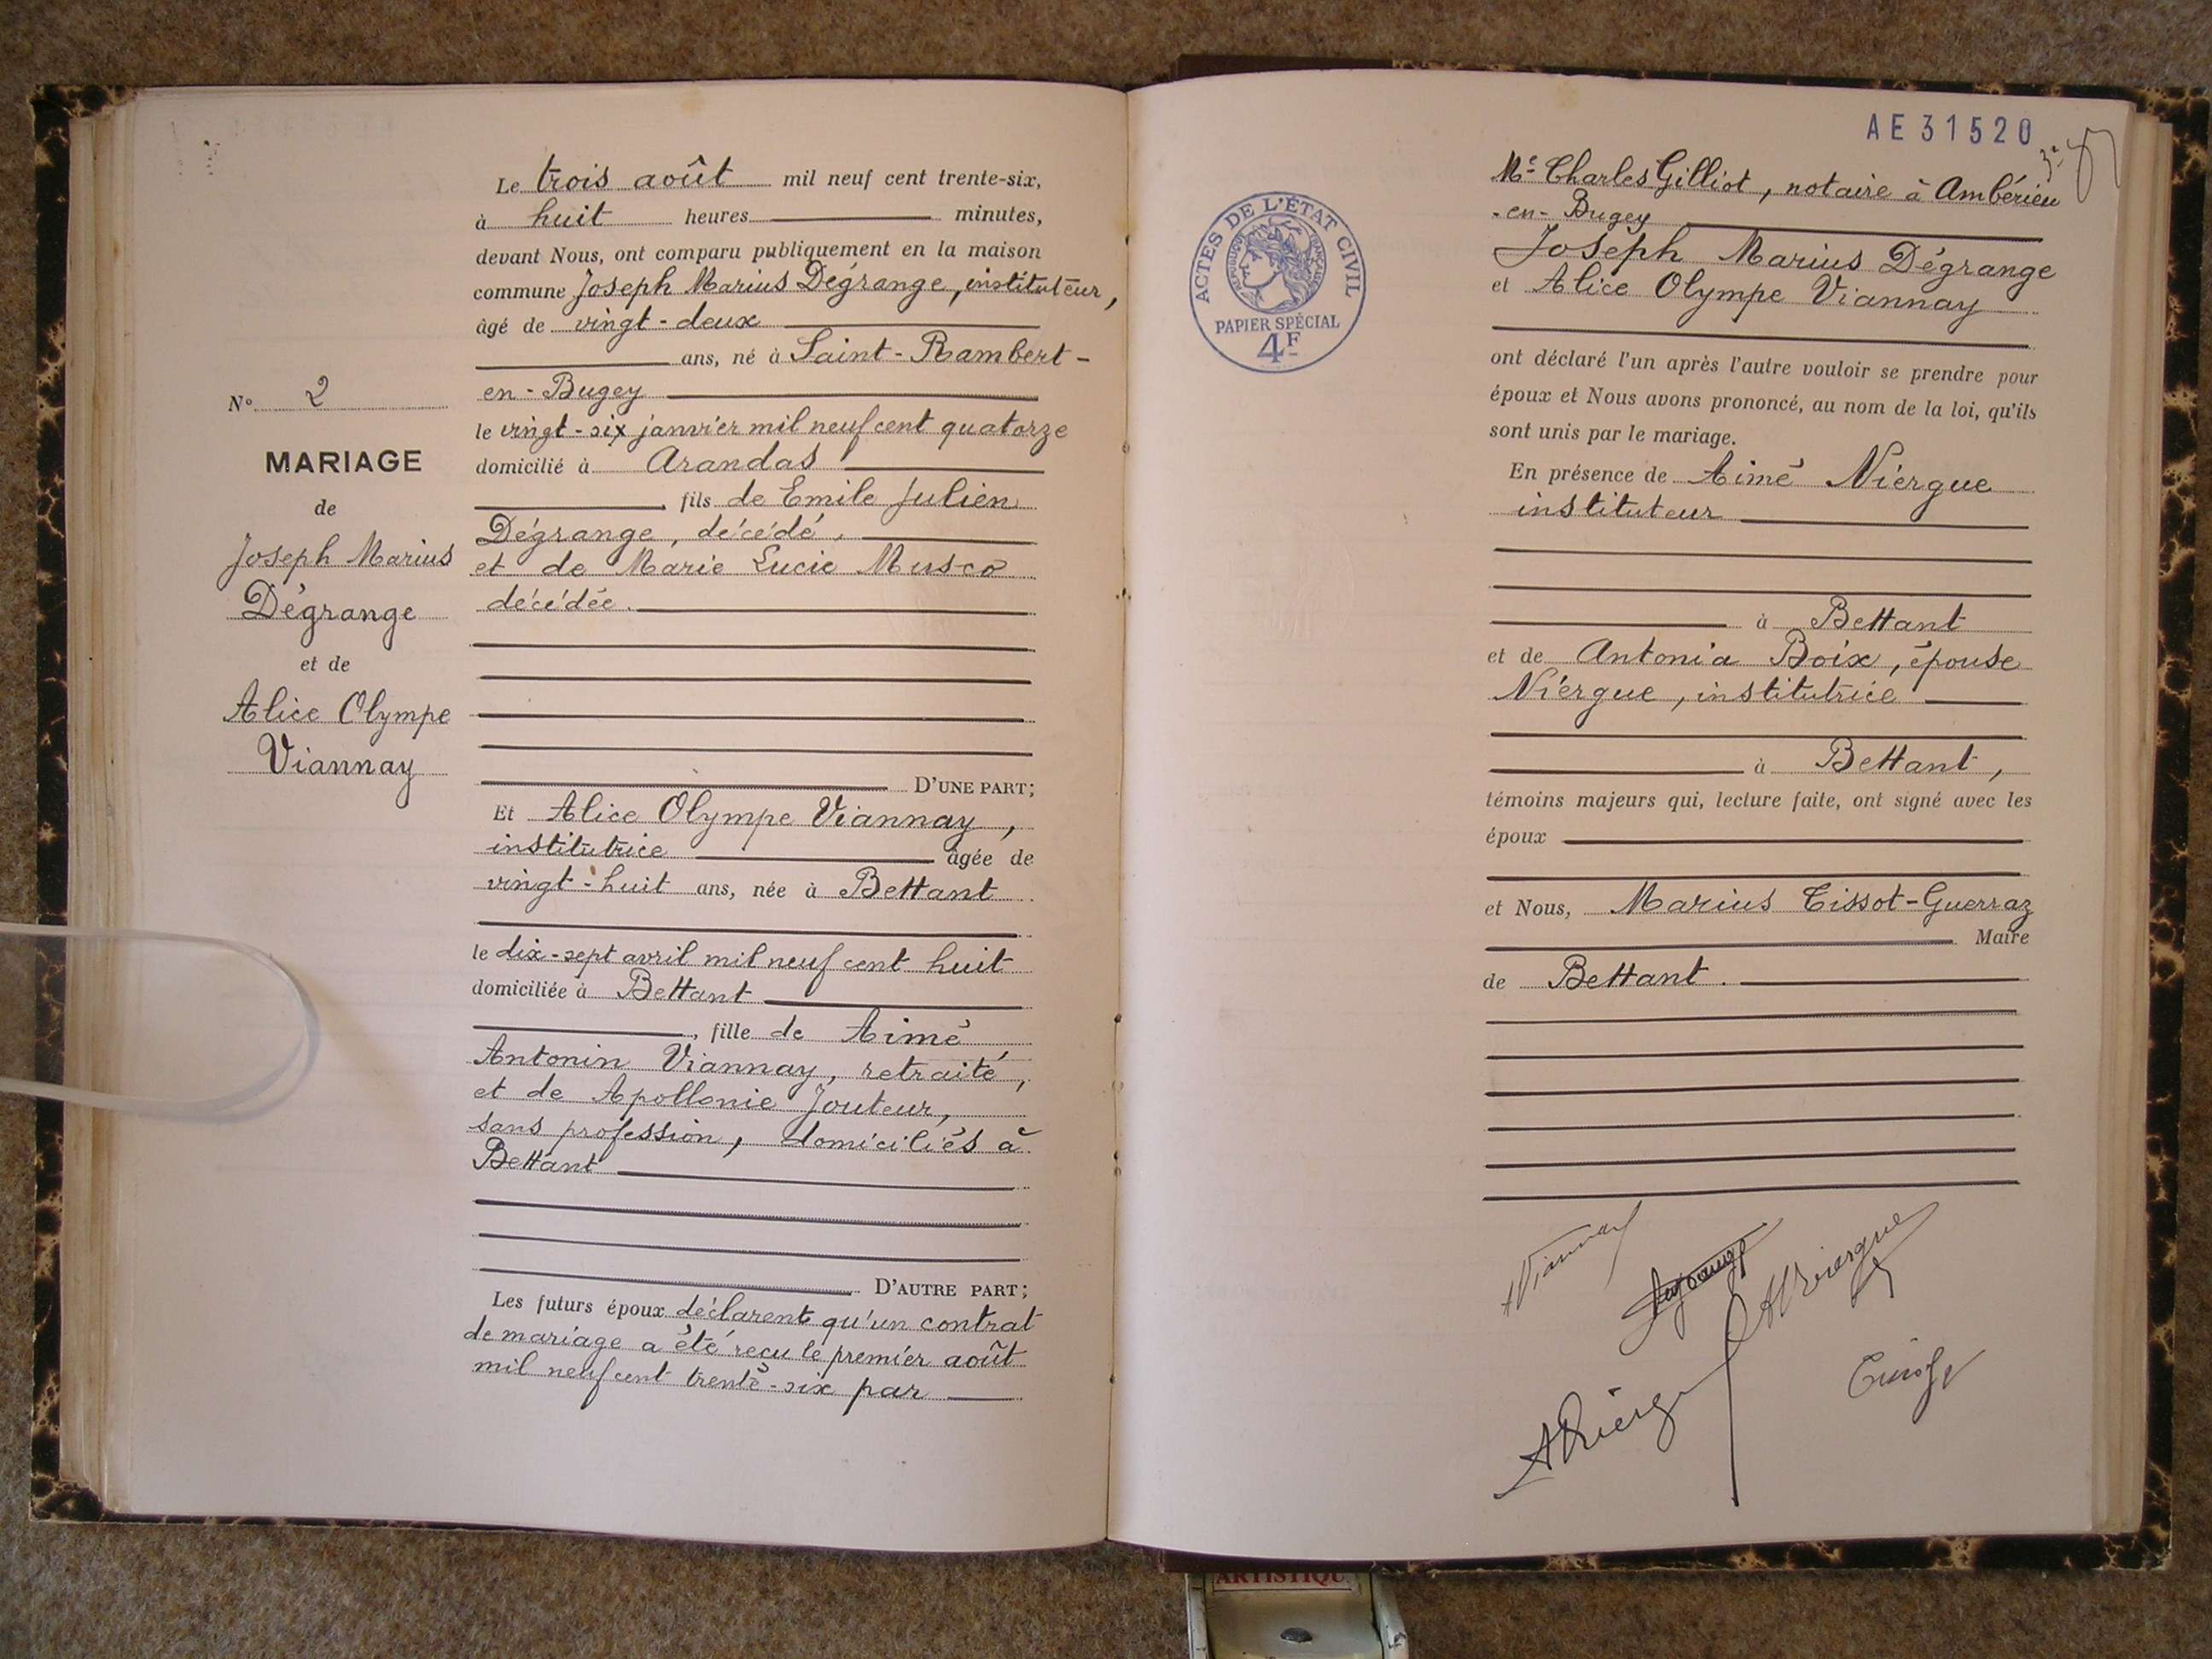 N° 2
MARIAGE
de
Joseph Marius
Dégrange
et de
Alice Olympe
Viannay
Le trois août mil neuf cent trente-six,
à huit heures minutes,
devant Nous, ont comparu publiquement en la maison
commune Joseph Marius Dégrange, instituteur,
âgé de vingt-deux
ans, né à Saint-Rambert-
en-Bugey
le vingt-six janvier mil neuf cent quatorze
domicilié à Arandas
, fils de Emile Julien
Dégrange, décédé,
et de Marie Lucie Musco
décédée.
D'UNE PART;
Et Alice Olympe Viannay,
institutrice âgée de
vingt-huit ans, née à Bettant
le dix-sept avril mil neuf cent huit
domiciliée à Bettant
, fille de Aimé
Antonin Viannay, retraité,
et de Apollonie Jouteur,
sans profession, domiciliés à
Bettant
D'AUTRE PART;
Les futurs époux déclarent qu'un contrat
de mariage a été reçu le premier août
mil neuf cent trente-six par
AE31520
ACTES DE L'ÉTAT CIVIL
RÉPUBLIQUE FRANÇAISE
PAPIER SPÉCIAL
4F
Me Charles Gilliot, notaire à Ambérieu
-en-Bugey
Joseph Marius Dégrange
et Alice Olympe Viannay
ont déclaré l'un après l'autre vouloir se prendre pour
époux et Nous avons prononcé, au nom de la loi, qu'ils
sont unis par le mariage.
En présence de Aimé Niergue
instituteur
à Bettant
et de Antonia Boix, épouse
Niergue, institutrice
à Bettant,
témoins majeurs qui, lecture faite, ont signé avec les
époux
et Nous, Marius Tissot-Guerraz
Maire
de Bettant.
AViannay
ANiergue
ARTISTIQU